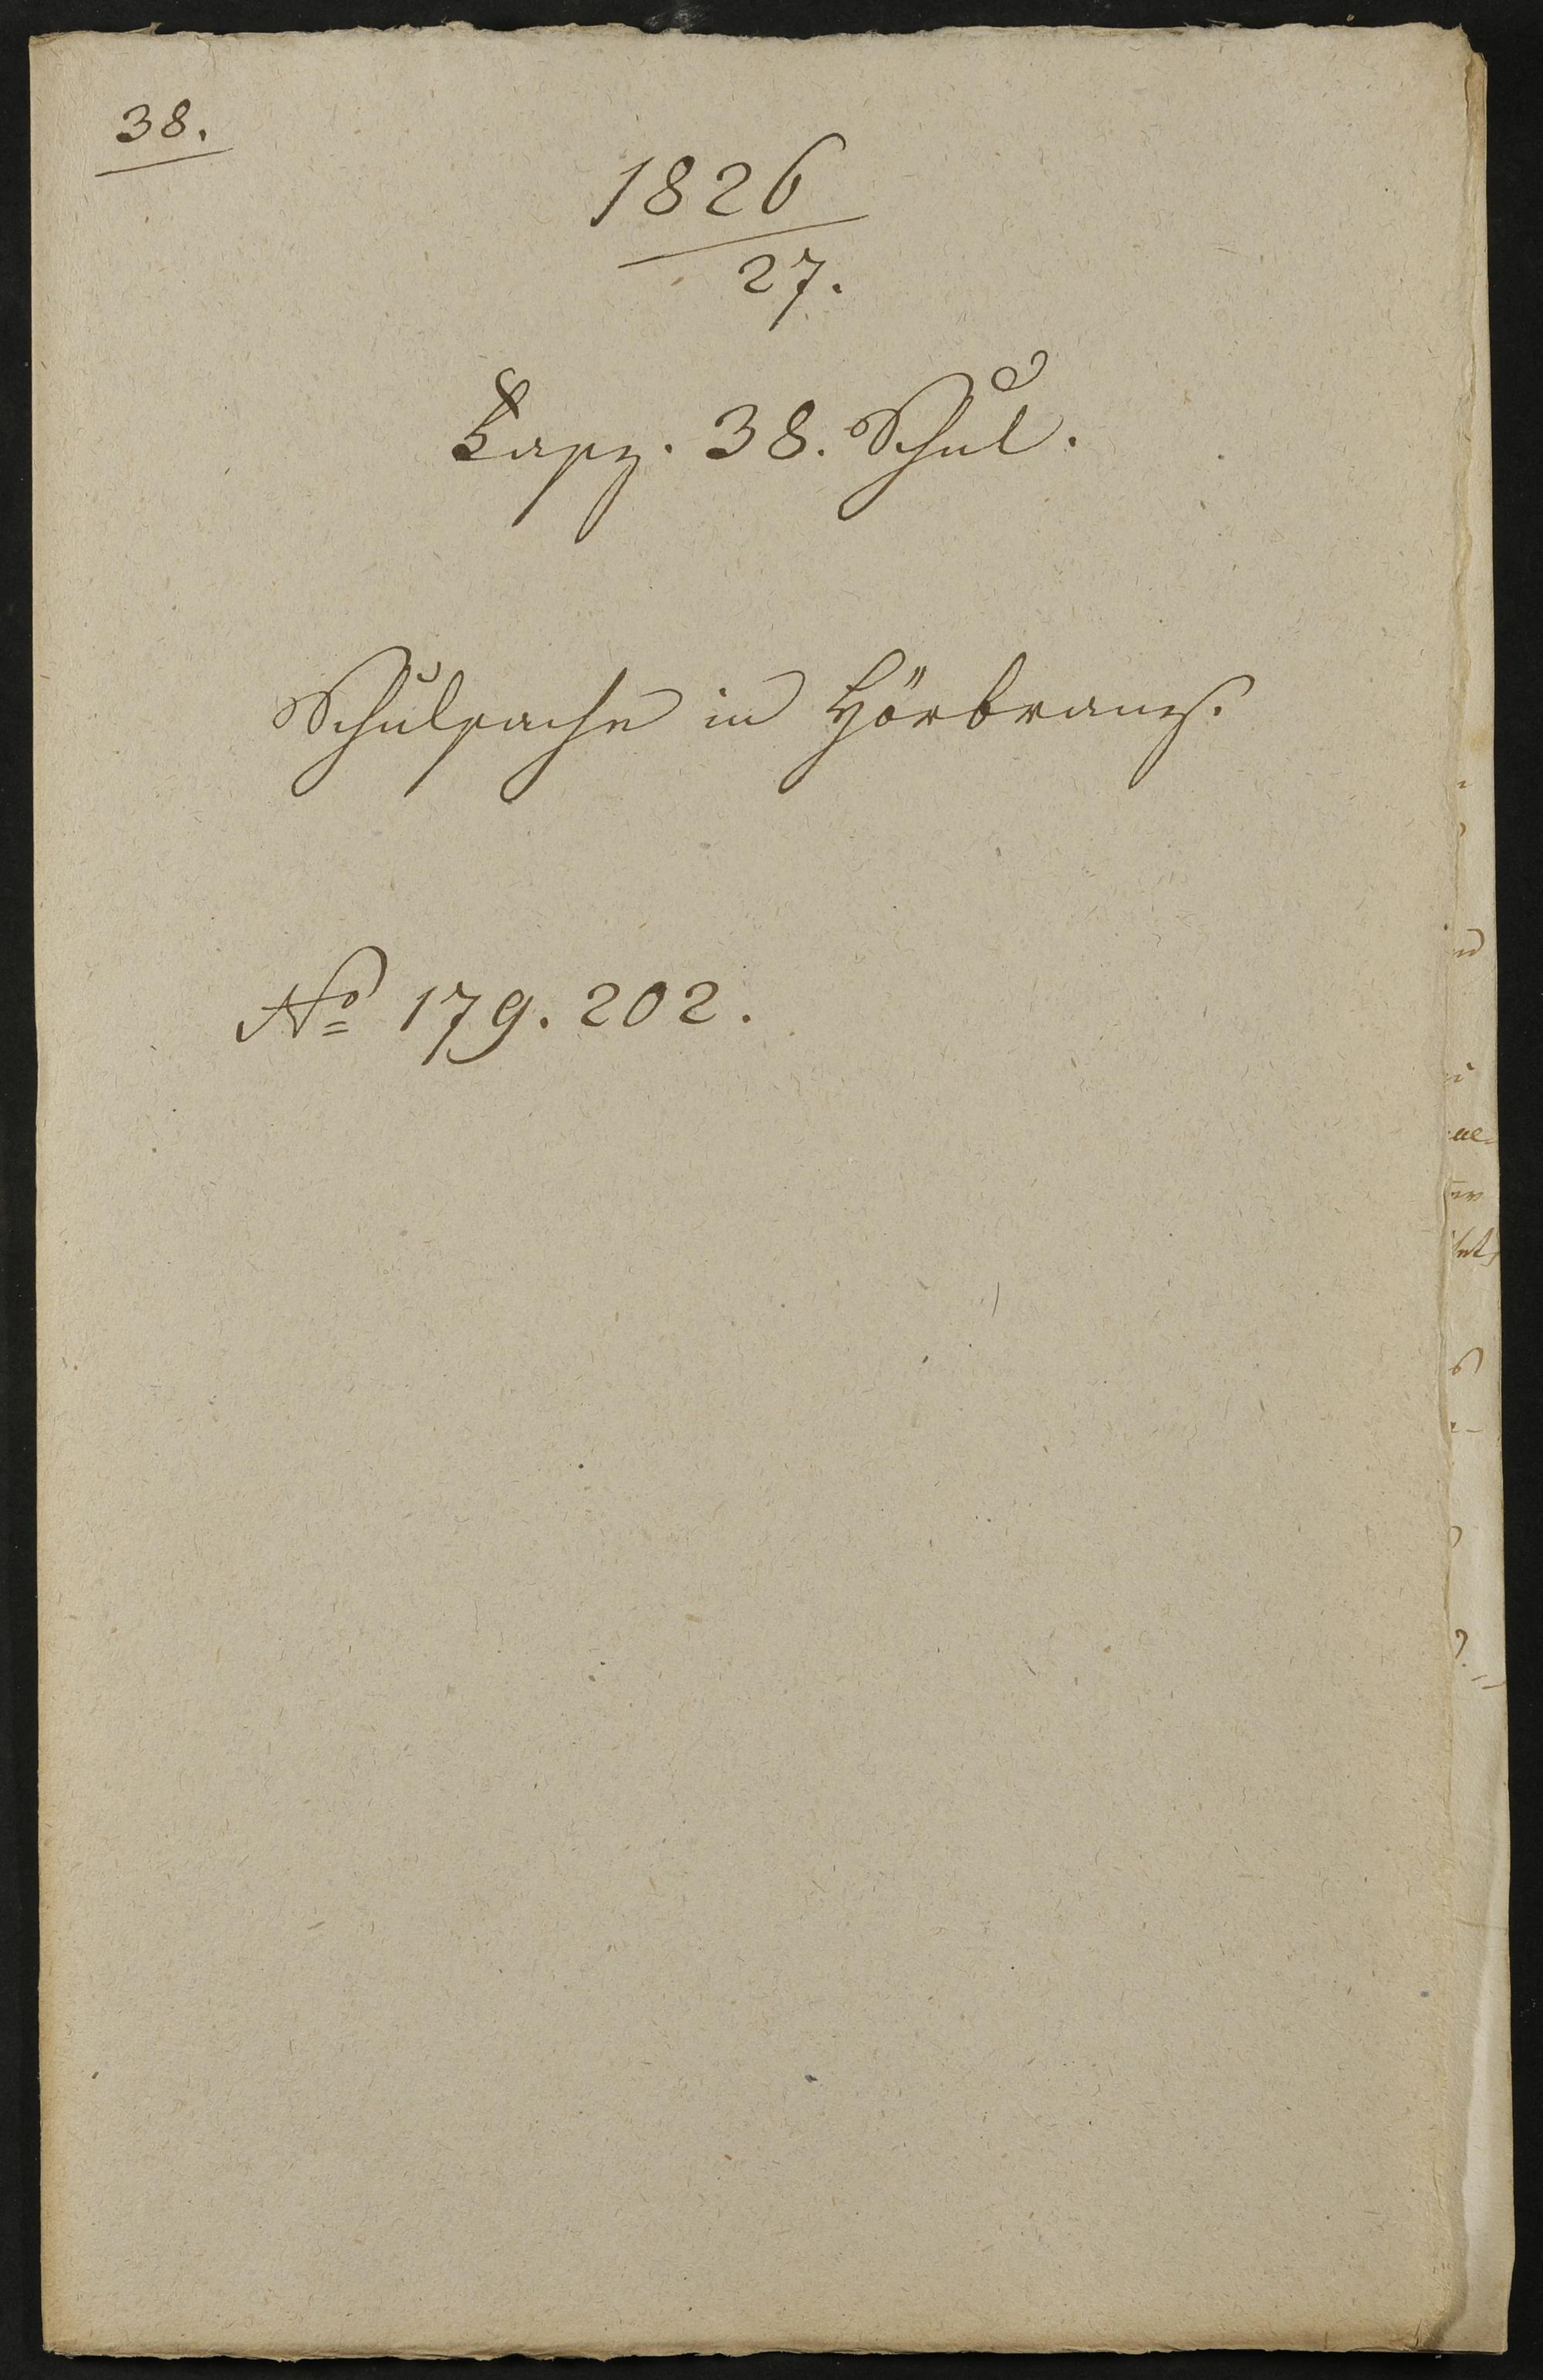 38.
1826
27.
Fasz. 38. Schul.
Schulsache in Hörbranz.
No 179. 202.